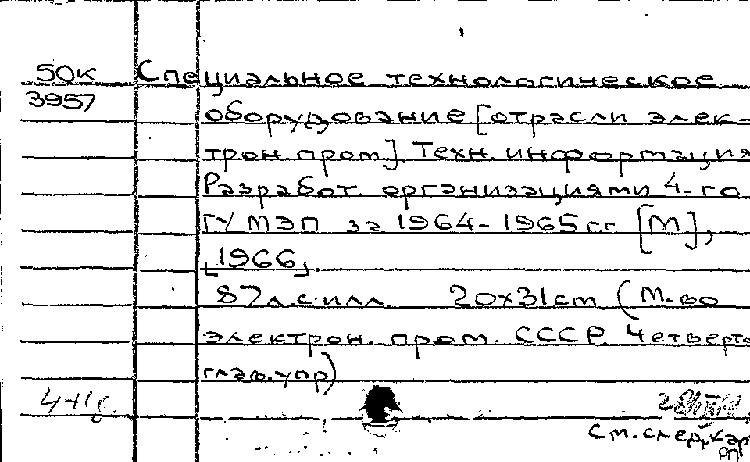 50к Специальное технологическое
3957 оборудование [отрасли элек-
трон. пром]. Техн. информация
Разработ. организациями 4-го
ГУ МЭП за 1964-1965 гг [М],
[1966].
87 л. с илл. 20х31 cm (М-во
электрон. пром. СССР. Четверто
глав. упр)
См. след. кар